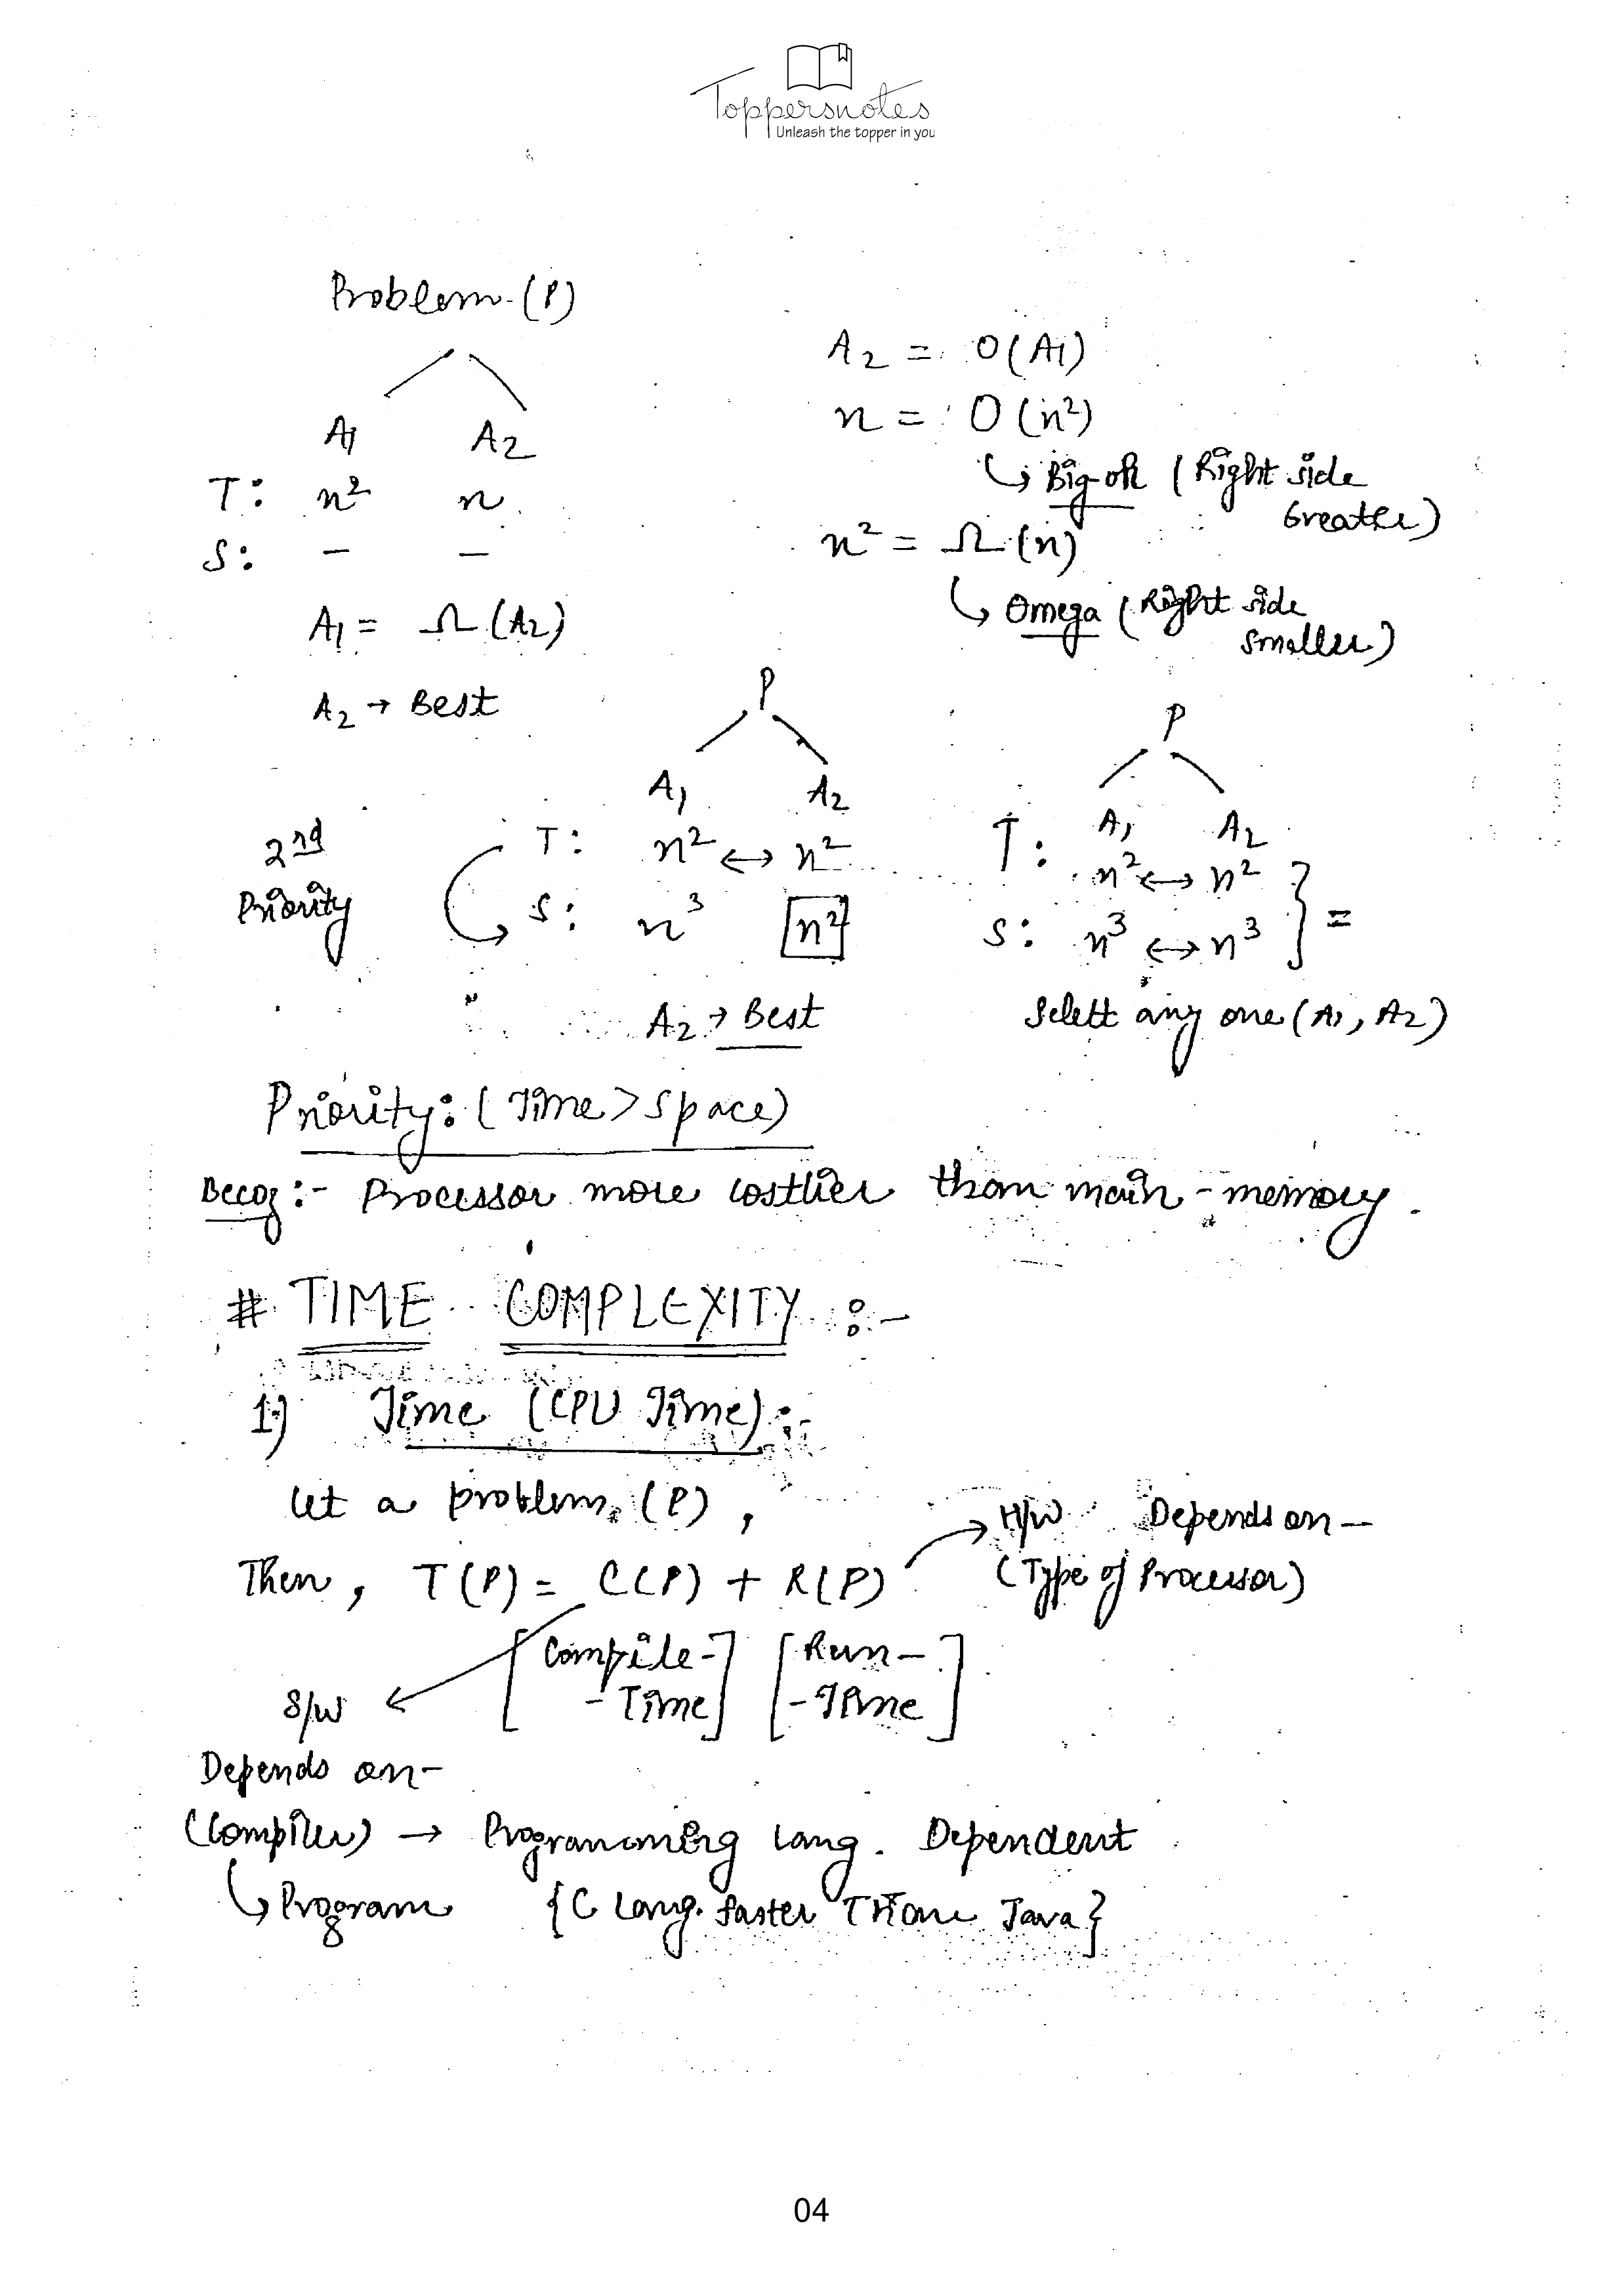 Toppersnotes
Unleash the topper in you
Problem (P)
A1 A2
T: n² n
S: - -
A1 = Ω (A2)
A2 → Best
A2 = O(A1)
n = O(n²)
↳ Big-oh (Right side
Greater)
n² = Ω(n)
↳ Omega (Right side
smaller)
P
A1 A2
2nd
Priority
T: n² ↔ n²
S: n³ n²
A2 → Best
P
A1 A2
T: n² ↔ n²
S: n³ ↔ n³ } =
Select any one (A1, A2)
Priority: (Time > Space)
Becoz :- Processor more costlier than main-memory.
# TIME COMPLEXITY :-
1) Time (CPU Time):-
Let a problem (P),
Then, T(P) = C(P) + R(P)
→ H/W Depends on -
(Type of Processor)
[Compile- [Run-
-Time] -Time]
S/W ←
Depends on-
(Compiler) → Programming Lang. Dependent
↳ Program {C Lang. faster Than Java}
04